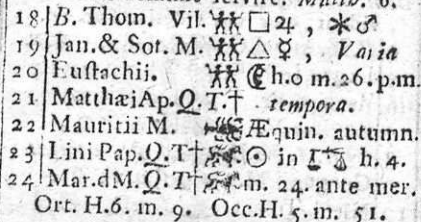 18 B. Thom. Vil. ♊ □ ♃, ⚹ ♂
19 Jan. & Sot. M. ♊ △ ☿, Varia
20 Eustachii. ♊ ☾ h.0 m.26. p.m.
21 Matthæi Ap. Q. T. † tempora.
22 Mauritii M. ♋ Æquin. autumn.
23 Lini Pap. Q. T † ♋ ☉ in ♎ h. 4.
24 Mar. d M. Q. T † ♋ m. 24. ante mer.
Ort. H.6. m. 9. Occ. H. 5. m. 51.